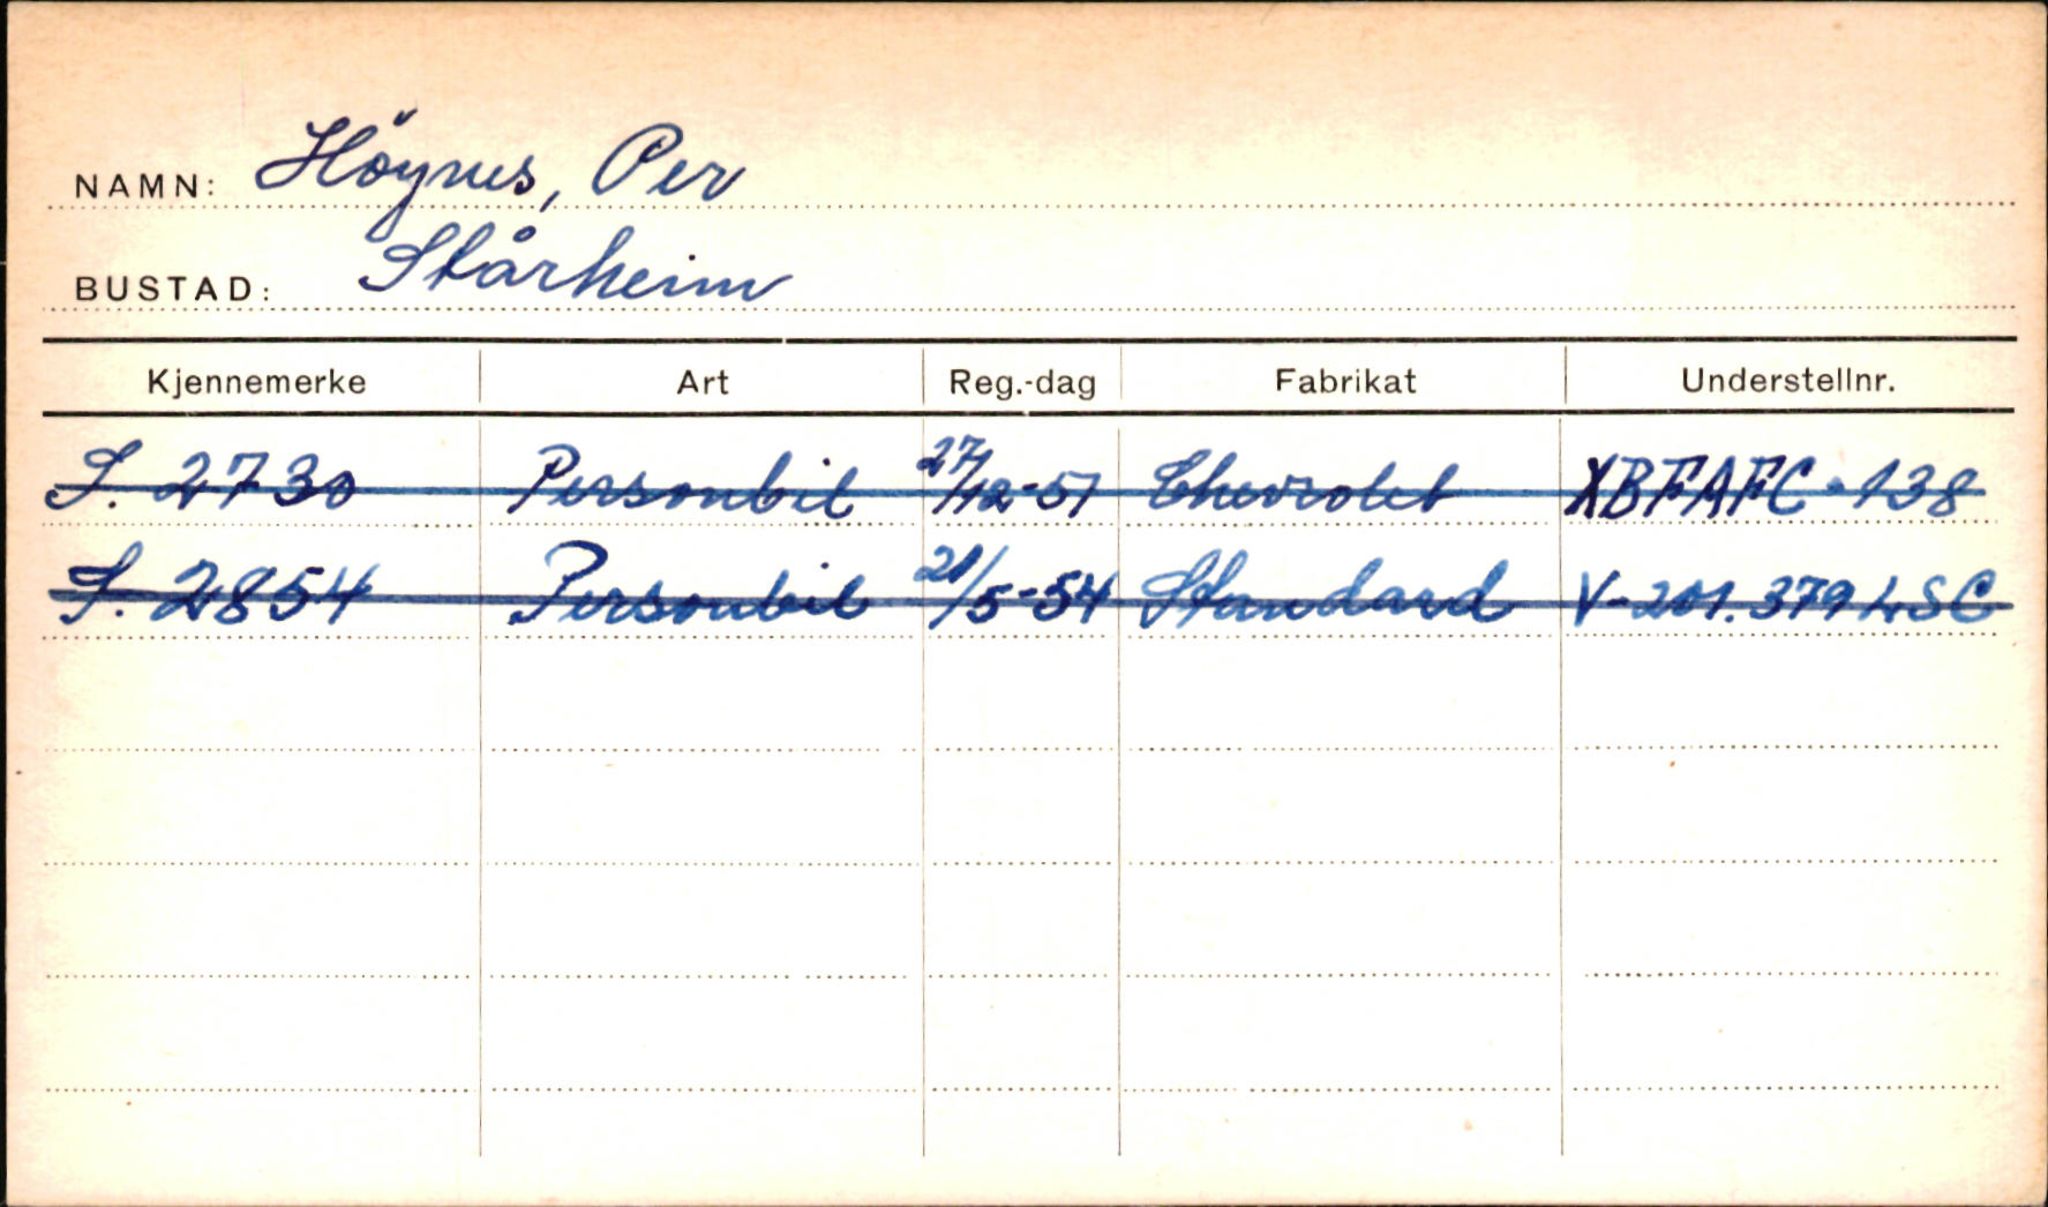 NAMN: Höynes, Per
BUSTAD: Stårheim
Kjennemerke Art Reg.-dag Fabrikat Understellnr.
S. 2730 Personbil 27/12-51 Chevrolet XBFAFC-138
S. 2854 Personbil 21/5-54 Standard V-201.379 LSC